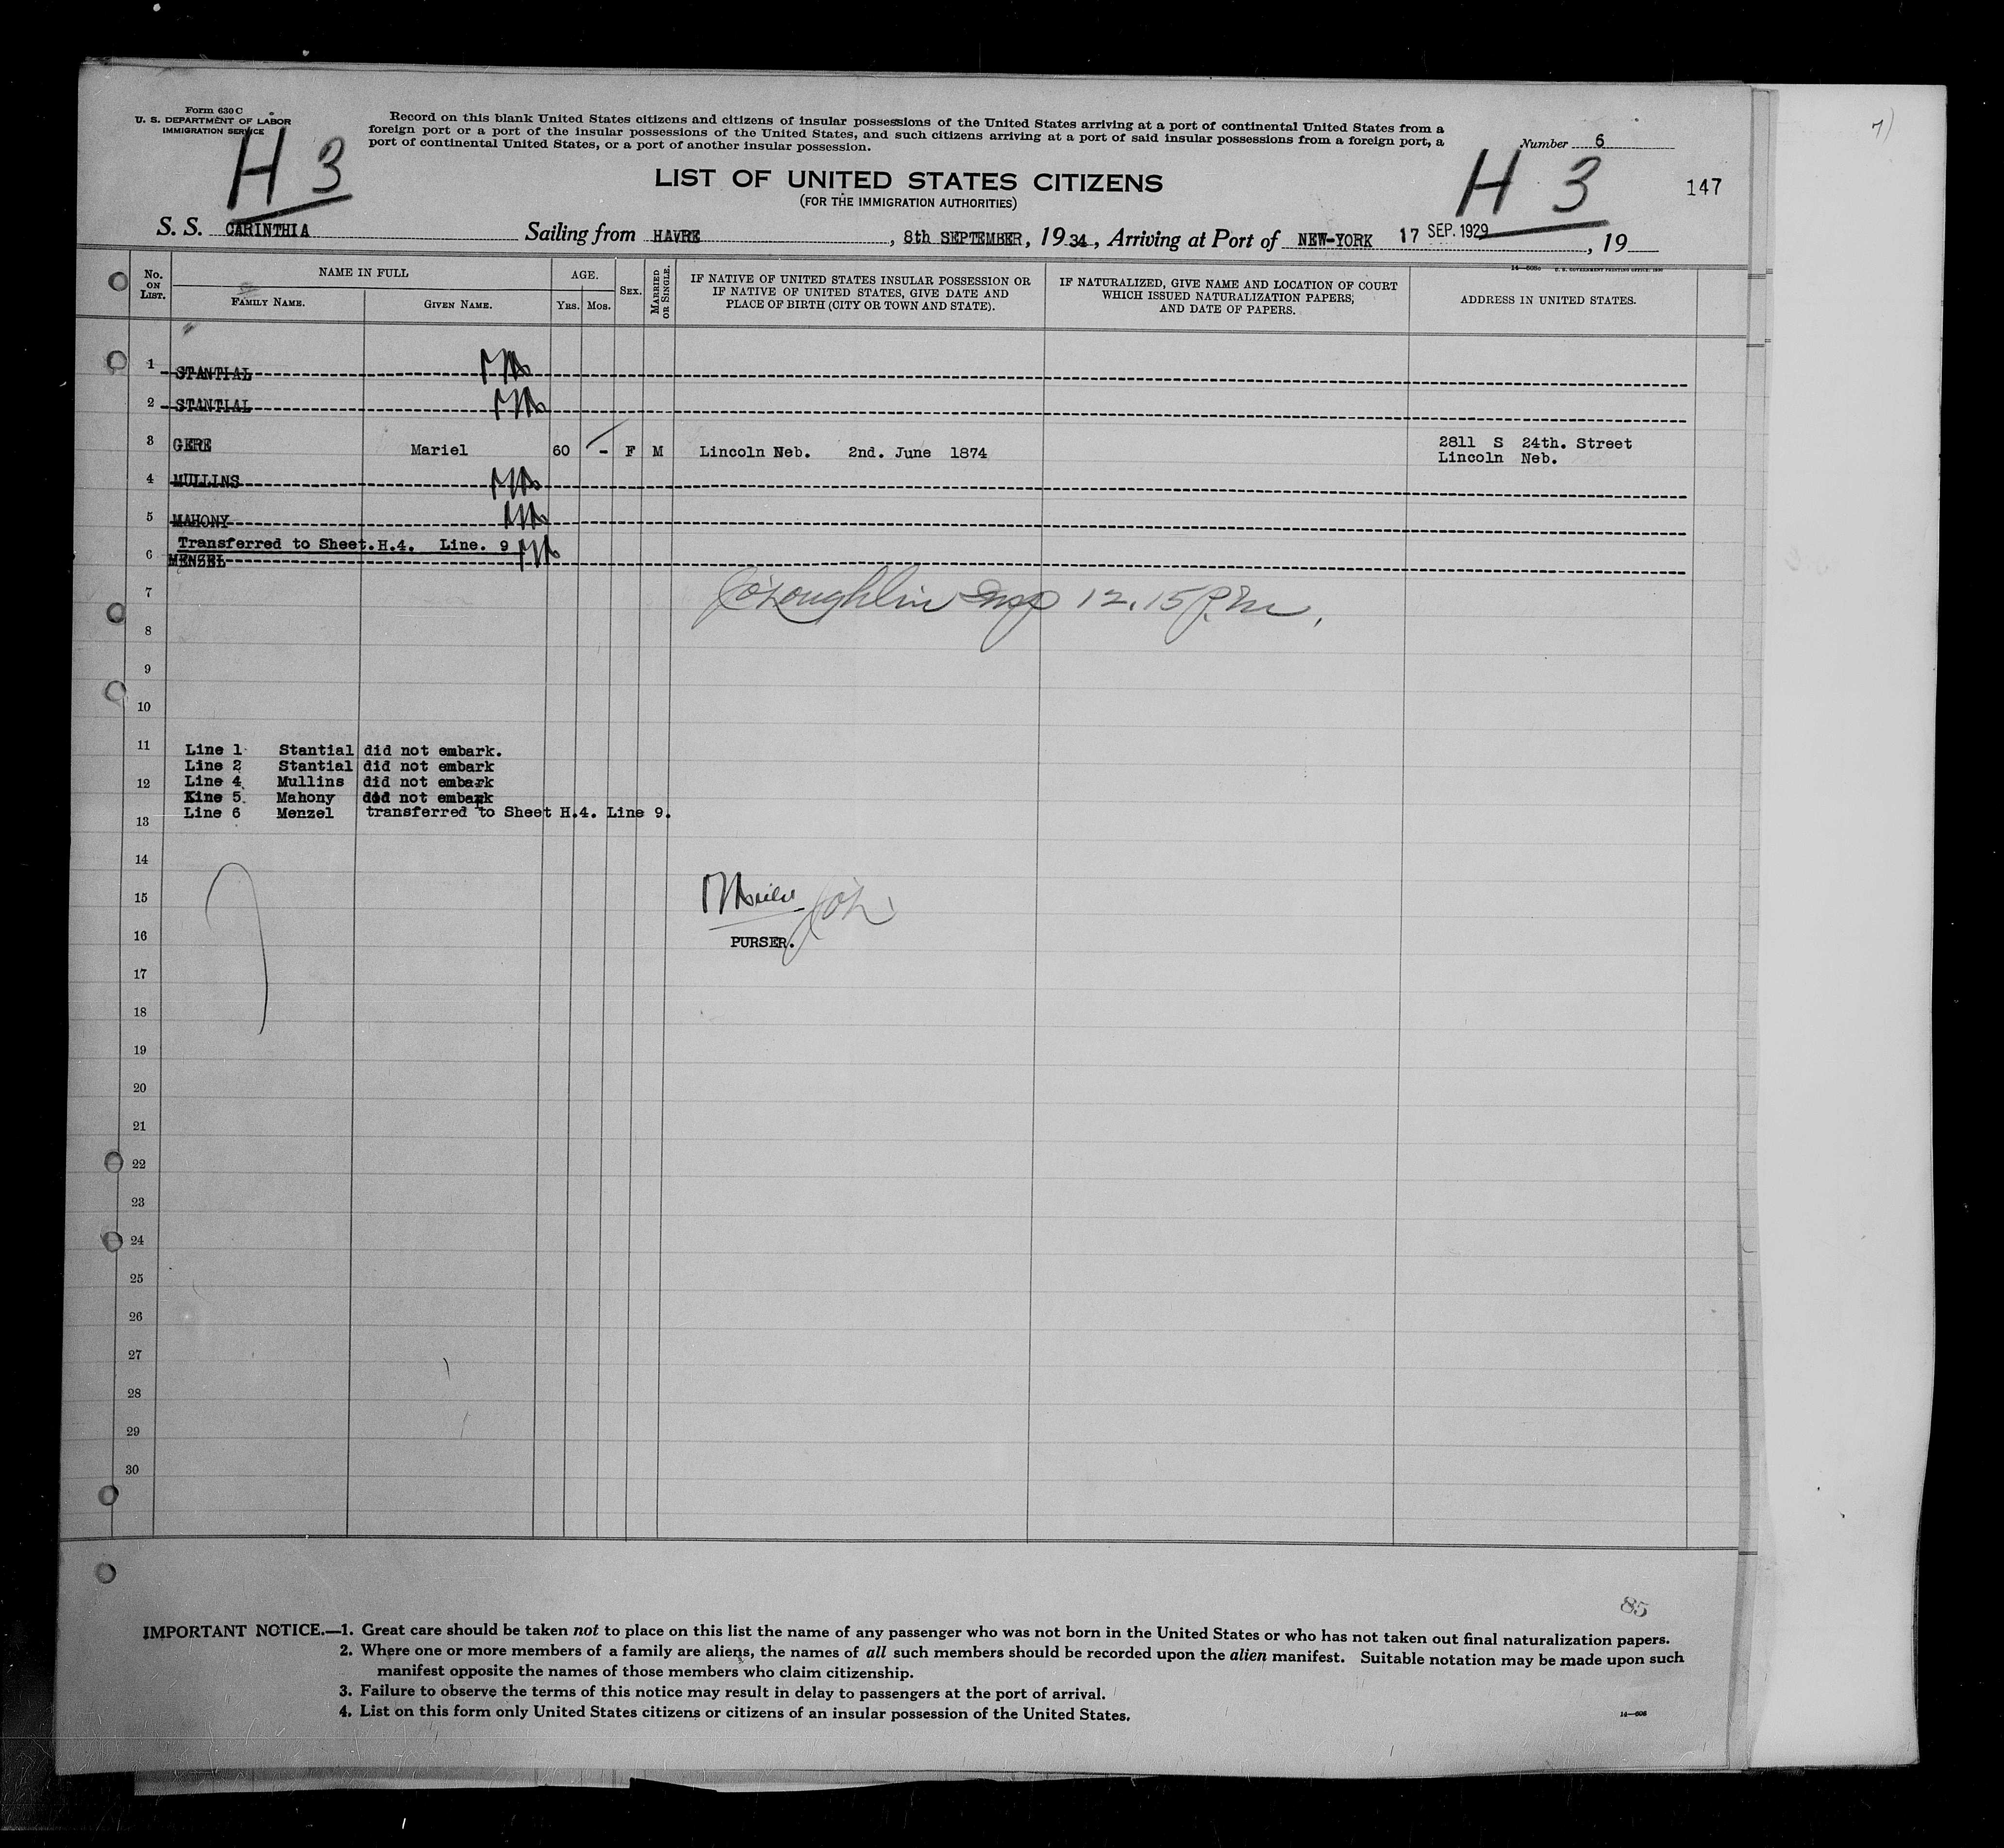 Form 630 C
U. S. DEPARTMENT OF LABOR
IMMIGRATION SERVICE
H 3
Record on this blank United States citizens and citizens of insular possessions of the United States arriving at a port of continental United States from a
foreign port or a port of the insular possessions of the United States, and such citizens arriving at a port of said insular possessions from a foreign port, a
port of continental United States, or a port of another insular possession.
Number 6
H 3
147
LIST OF UNITED STATES CITIZENS
(FOR THE IMMIGRATION AUTHORITIES)
S. S. CARINTHIA Sailing from HAVRE, 8th SEPTEMBER, 1934, Arriving at Port of NEW-YORK 17 SEP. 1929, 19
No. ON LIST.
NAME IN FULL
FAMILY NAME.
GIVEN NAME.
AGE.
YRS. MOS.
SEX.
MARRIED OR SINGLE.
IF NATIVE OF UNITED STATES INSULAR POSSESSION OR
IF NATIVE OF UNITED STATES, GIVE DATE AND
PLACE OF BIRTH (CITY OR TOWN AND STATE).
IF NATURALIZED, GIVE NAME AND LOCATION OF COURT
WHICH ISSUED NATURALIZATION PAPERS,
AND DATE OF PAPERS.
ADDRESS IN UNITED STATES.
1 STANTIAL
2 STANTIAL
3 GERE Mariel 60 - F M Lincoln Neb. 2nd. June 1874 2811 S 24th. Street
Lincoln Neb.
4 MULLINS
5 MAHONY
Transferred to Sheet.H.4. Line. 9
6 MENZEL
7 O'Loughlin Insp 12.15 P.M.
8
9
10
11
Line 1 Stantial did not embark.
Line 2 Stantial did not embark
12
Line 4 Mullins did not embark
Kine 5. Mahony did not embark
Line 6 Menzel transferred to Sheet H.4. Line 9.
13
14
15
16
PURSER.
17
18
19
20
21
22
23
24
25
26
27
28
29
30
85
IMPORTANT NOTICE.—1. Great care should be taken not to place on this list the name of any passenger who was not born in the United States or who has not taken out final naturalization papers.
2. Where one or more members of a family are aliens, the names of all such members should be recorded upon the alien manifest. Suitable notation may be made upon such
manifest opposite the names of those members who claim citizenship.
3. Failure to observe the terms of this notice may result in delay to passengers at the port of arrival.
4. List on this form only United States citizens or citizens of an insular possession of the United States.